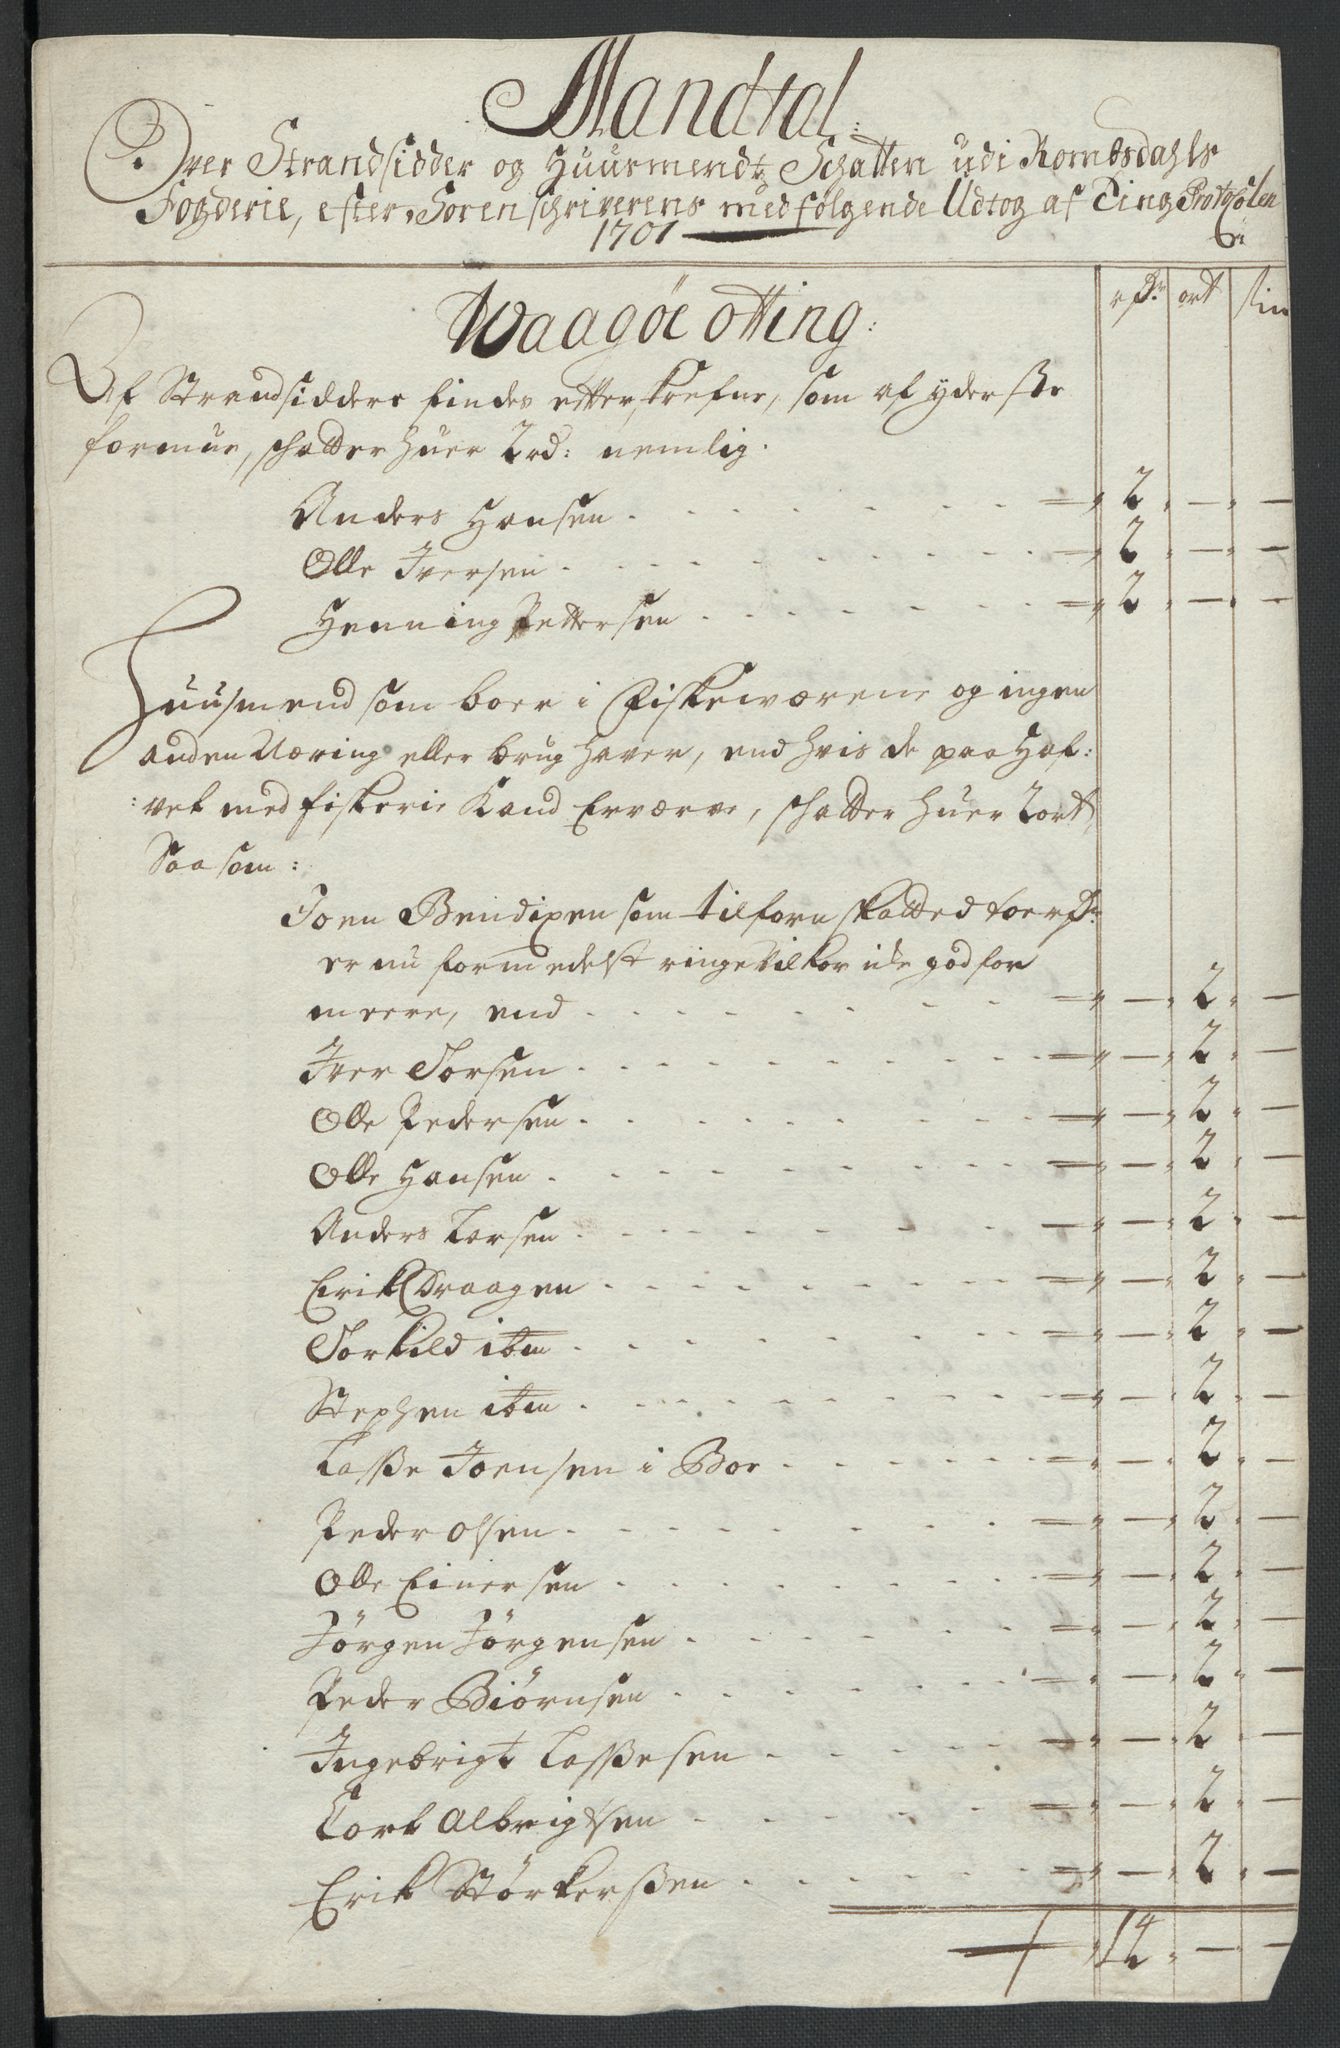 Mandtal
Over Strandsidder og Huusmends Schatten udi Rombsdahls
Fogderie, efter Sorenschriverens medfølgende Udtog af Ting Protocolen
1701
rdr ort skin
Waagøe otting:
Af Strandsiddere findes efterskrefne, som af yderste
formue, schatter huer 2 rd: nemlig.
Anders Hansen . 2 - -
Olle Iversen . 2 - -
Henning Pettersen . 2 - -
Huusmend som boer i Fiskeværene og ingen
anden Næring eller brug haver, end hvis de paa Haf:
:vet med fiskerie Kand Erværve, schatter huer 2 ort
Saasom:
Joen Bendixen som tilforn skatted toe rdr
er nu formedelst ringe Vilkor iche god for
meere, end . - 2 -
Iver Torsen . - 2 -
Olle Pedersen . - 2 -
Olle Hansen . - 2 -
Anders Larsen . - 2 -
Erik Draagen . - 2 -
Torkild ibm . - 2 -
Stephen ibm . - 2 -
Lasse Joensen i Bor . - 2 -
Peder Olsen . - 2 -
Olle Einersen . - 2 -
Jørgen Jørgensen . - 2 -
Peder Biørnsen . - 2 -
Ingebrigt Lassesen . - 2 -
Cort Albrigtsen . - 2 -
Erik Størkersen . - 2 -
14 - -